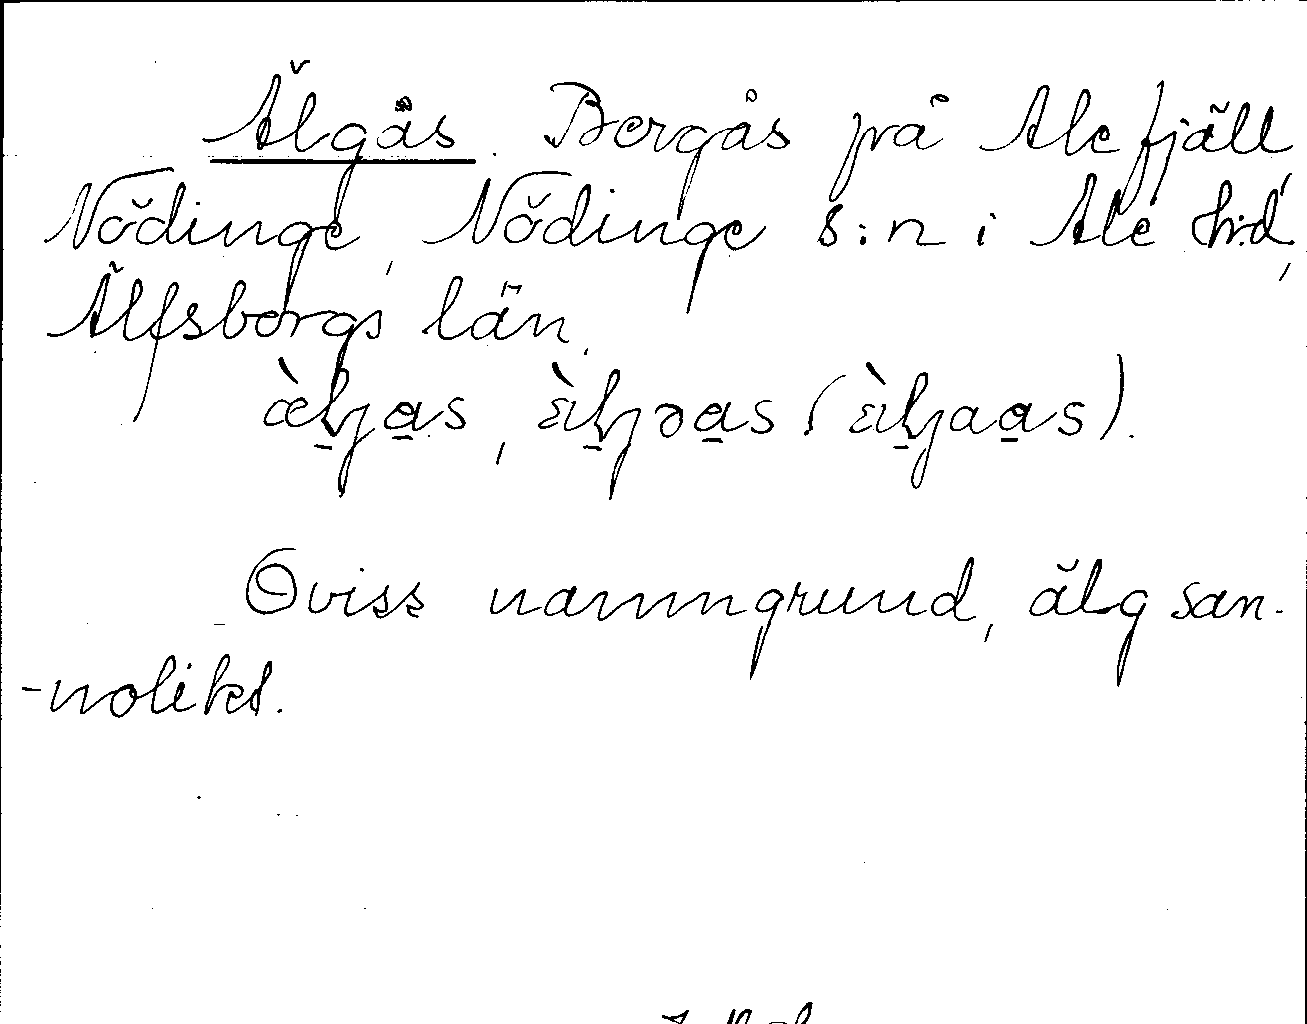 Älgås. Bergås på Alefjäll,
Nödinge, Nödinge s:n i Ale h:d,
Älfsborgs län.
Oviss namngrund, älg san-
-nolikt.